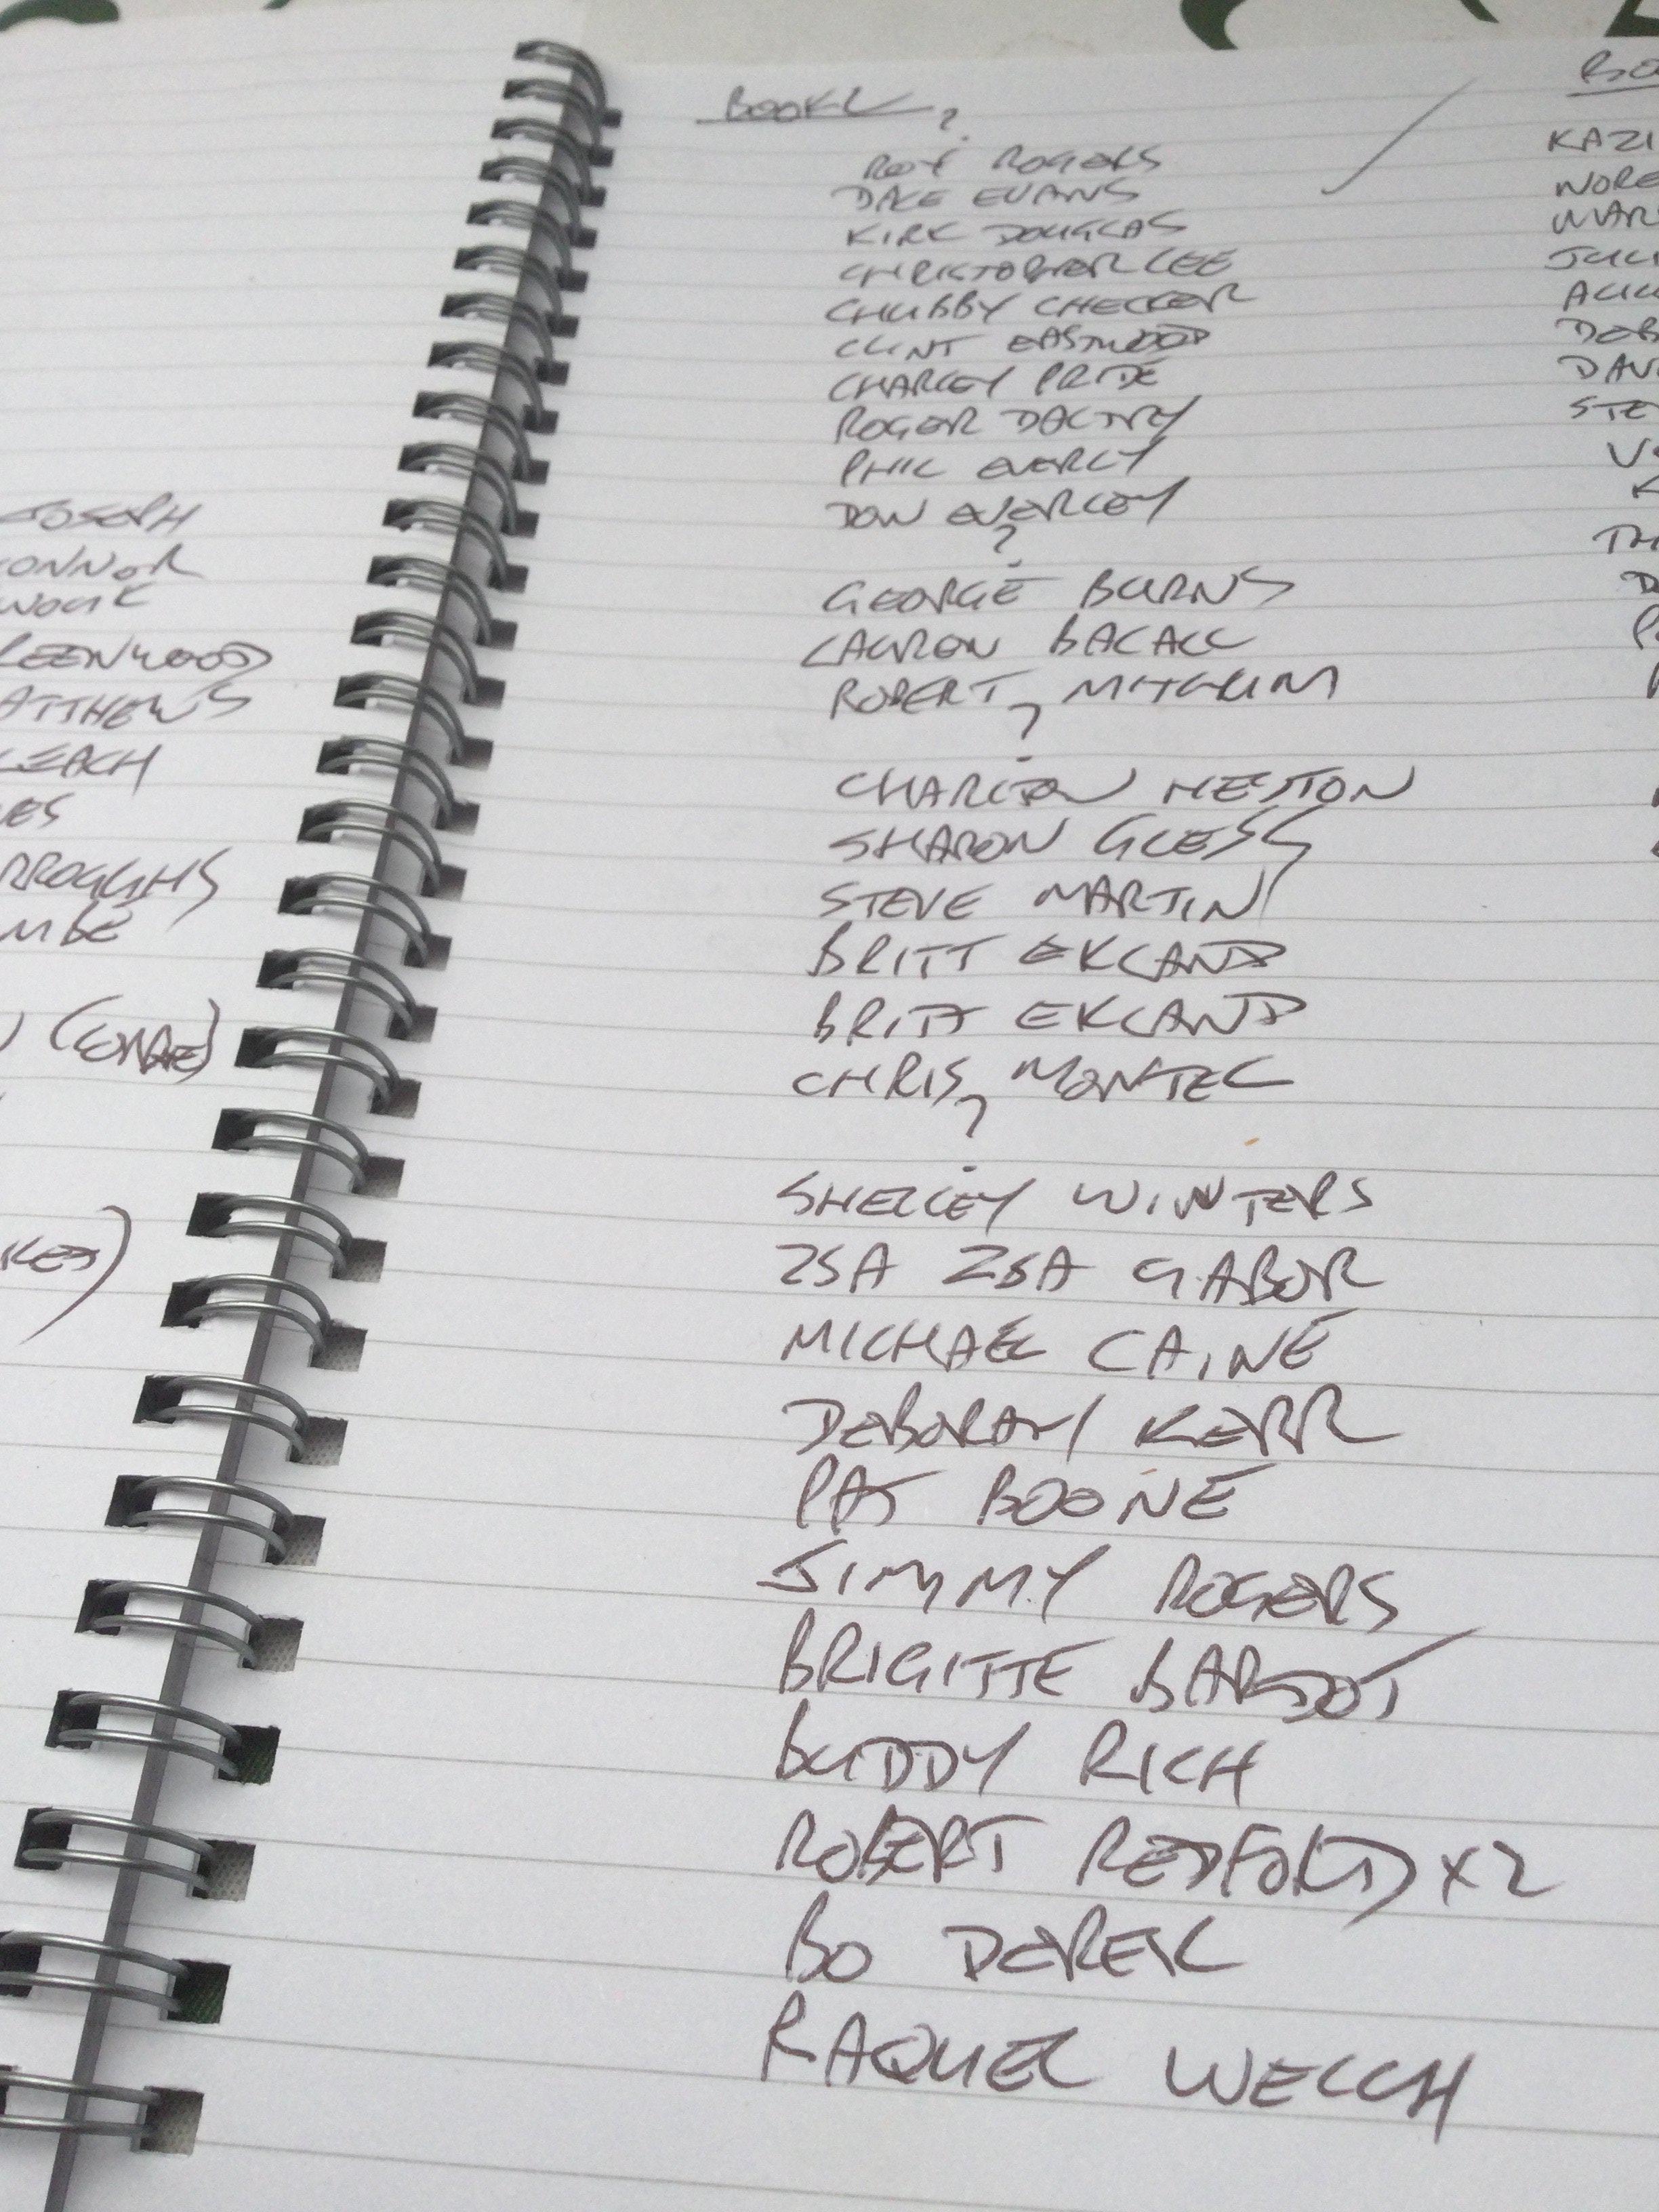 JOSEPH
ONNOR
WOUK
REENWOOD
ATTHEWS
LEACH
VES
RROUGHS
MBE
KES)
BOOK
?
ROY ROGERS
DALE EVANS
KIRK DOUGLAS
CHRISTOPHER LEE
CHUBBY CHECKER
CLINT EASTWOOD
CHARLEY PRIDE
ROGER DALTREY
PHIL EVERLY
DON EVERLEY
?
GEORGE BURNS
LAUREN BACALL
ROBERT MITCHUM
?
CHARLTON HESTON
SHARON GLESS
STEVE MARTIN
BRITT EKLAND
BRITT EKLAND
CHRIS MONTEL
?
SHELLEY WINTERS
ZSA ZSA GABOR
MICHAEL CAINE
DEBORAH KERR
PAT BOONE
JIMMY ROGERS
BRIGITTE BARDOT
BUDDY RICH
ROBERT REDFORD X2
BO DEREK
RAQUEL WELCH
BO
KAZI
NORE
MAR
JULI
DEB
DAV
STE
TH